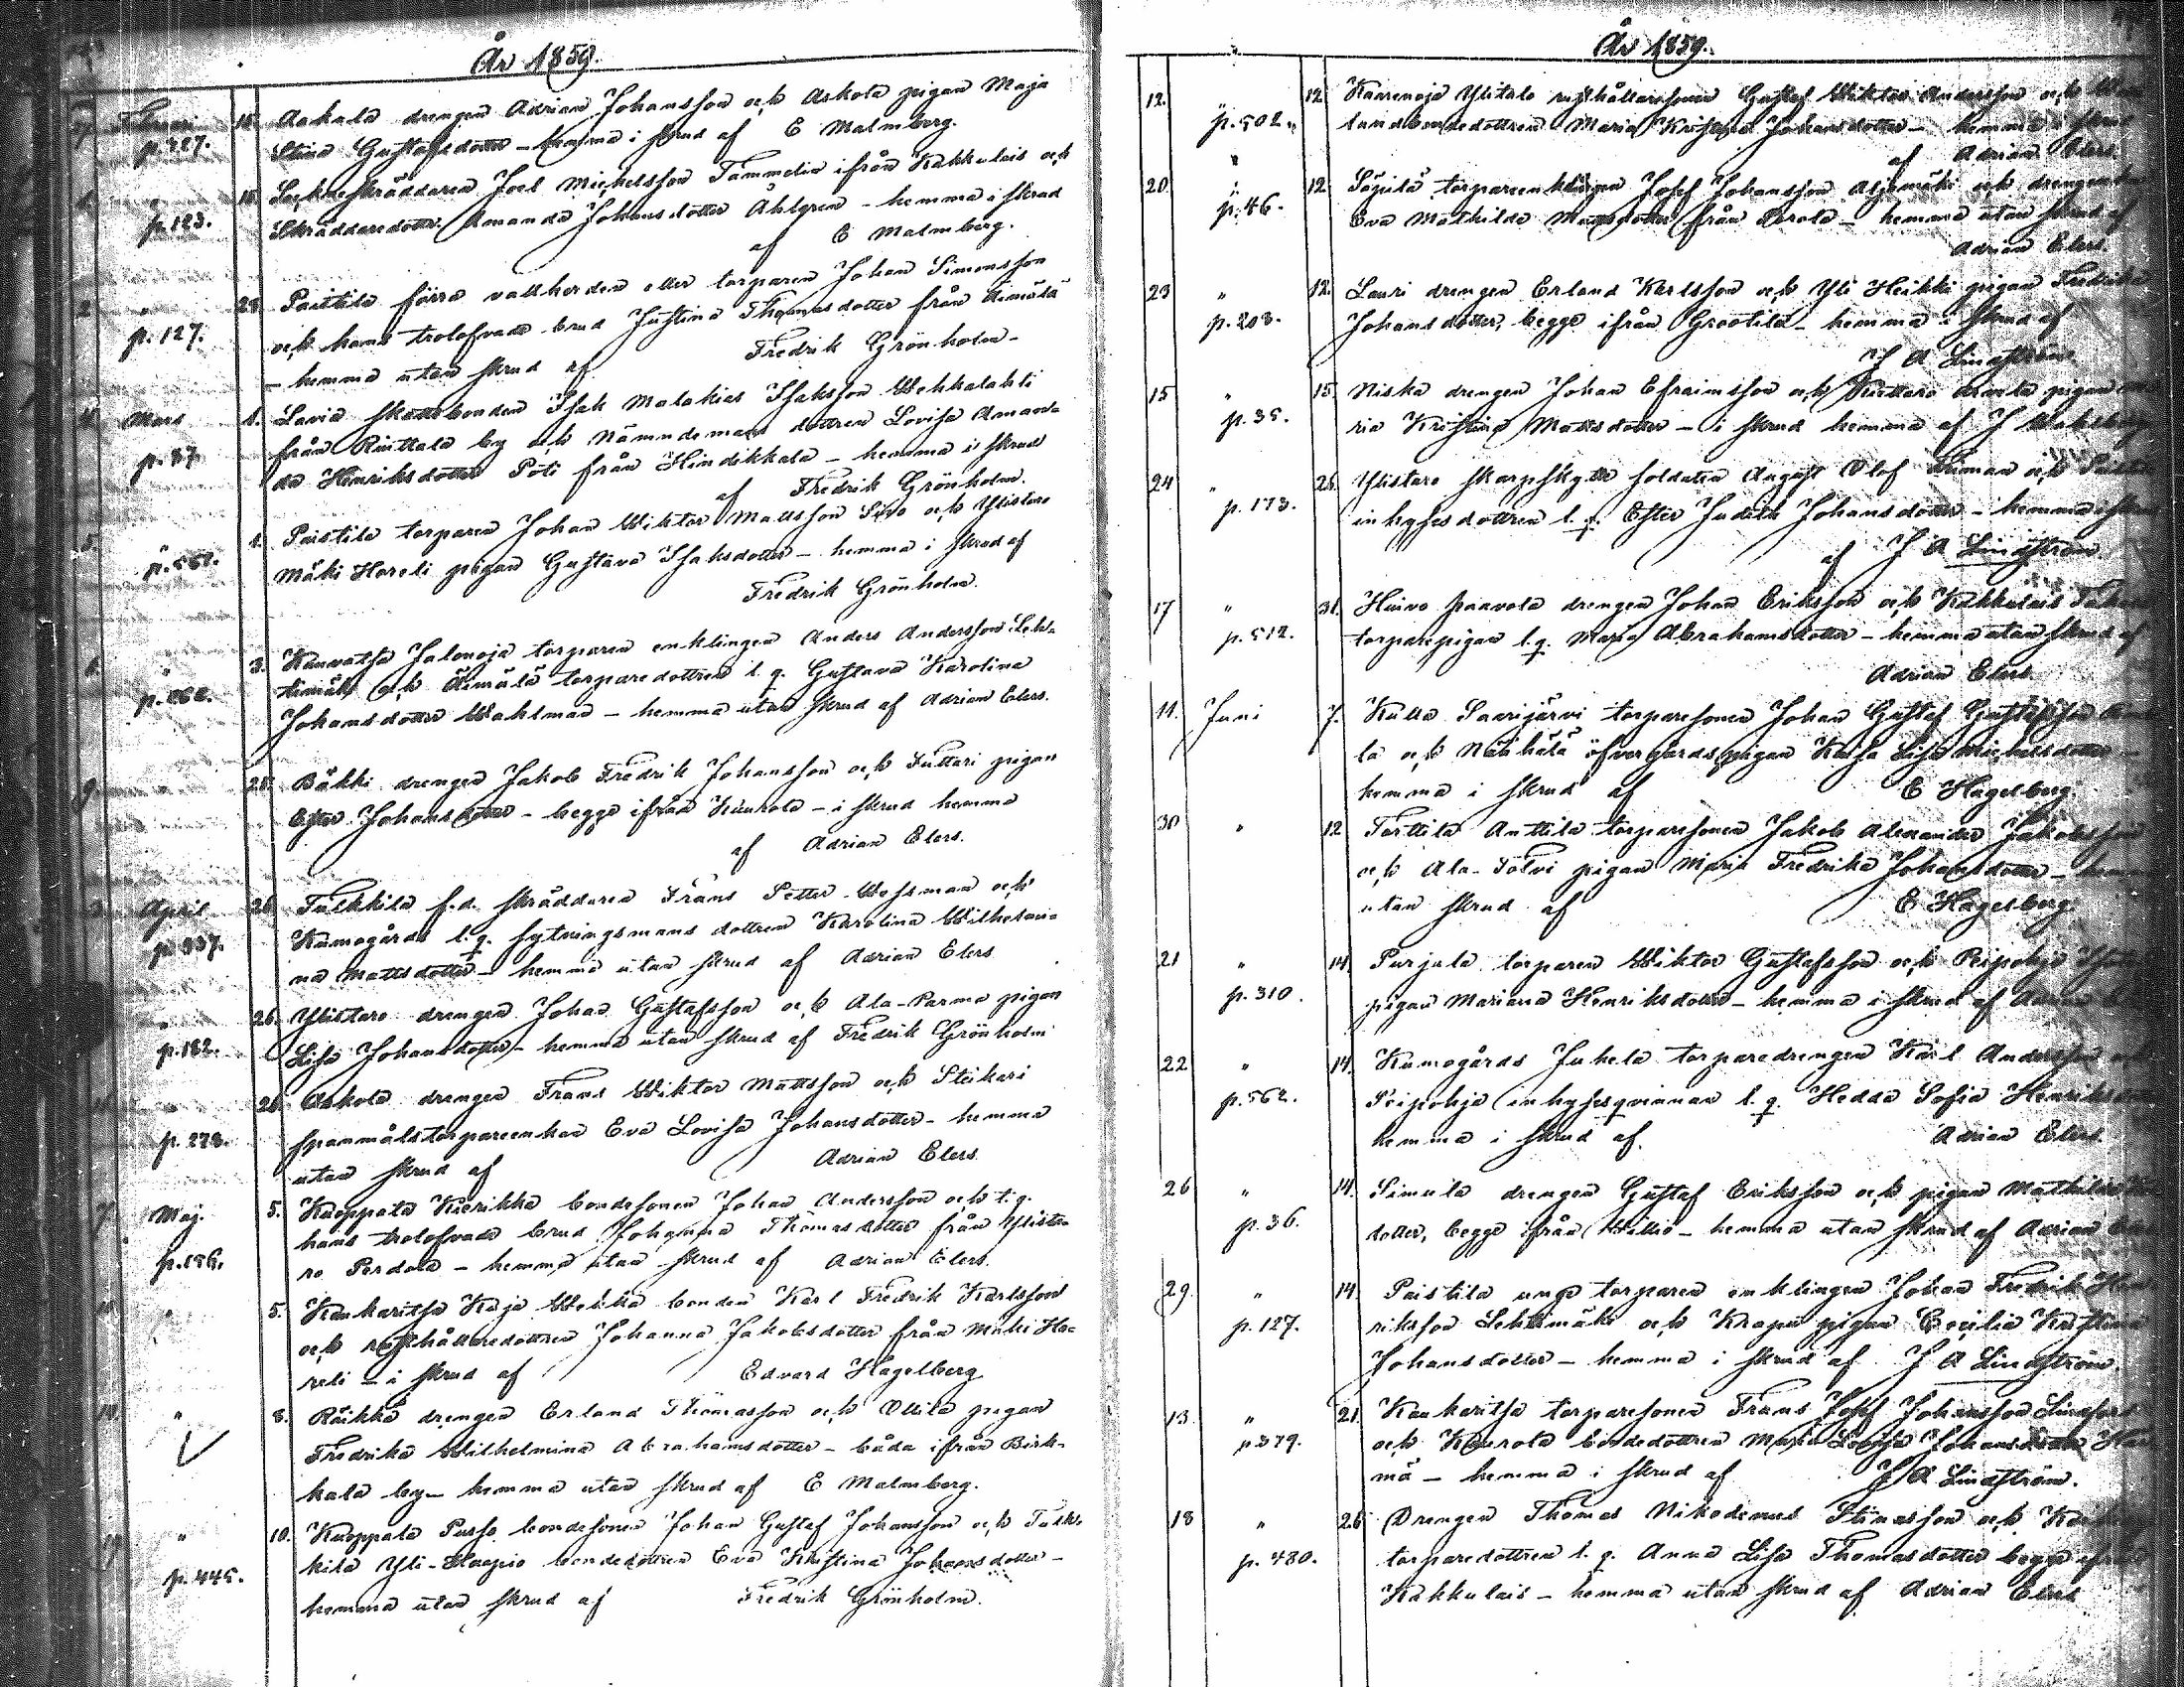 År 1859.
Februari
p. 227.
15. Askala drengen Adrian Johansson och Askola pigan Maja
Stina Gustafsdotter - hemma i skrud af E Malmberg.
p. 123.
15. Sockneskräddaren Joel Michelsson Tammelin ifrån Kakkulais och
Skräddaredottr. Amanda Johansdotter Åhlgren - hemma i skrud
af E Malmberg.
2 "
p. 127.
28 Paistila förra vallherden eller torparen Johan Simonsson
och hans trolofvade brud Justina Thomasdotter från Äimälä
- hemma utan skrud af Fredrik Grönholm -
Mars
p. 37
1. Lavia skattebonden Isak Malakias Isaksson Wehkalahti
från Riuttala by och Nämndemans dottren Lovisa Aman-
da Henriksdotter Poti från Hindikkala - hemma i skrud
af Fredrik Grönholm.
5. "
1. Paistila torparen Johan Wiktor Mattsson Sivo och Ylistaro
Mäki Hareli pigan Gustava Isaksdotter - hemma i skrud af
Fredrik Grönholm.
6. "
3. Kauvatsa Jalonoja torparen enklingen Anders Andersson Leh-
timäki och Äimälä torparedottren l. q. Gustava Karolina
Johansdotter Wahlman - hemma utan skrud af Adrian Elers.
9. "
25. drengen Jakob Fredrik Johansson och Juttari pigan
Ester Johansdotter - begge ifrån - i skrud hemma
af Adrian Elers.
April
p. 337.
26. Tulkkila f.d. skräddaren Frans Petter Wessman och
Kumogårds l. q. sytningsmans dottren Karolina Wilhelmi-
na Mattsdotter - hemma utan skrud af Adrian Elers
"
p. 182.
26. Ylistaro drengen Johan Gustafsson och Ala-Parma pigan
Lisa Johansdotter - hemma utan skrud af Fredrik Grönholm
"
p. 278.
26. Askola drengen Frans Wiktor Mattsson och Steikari
spanmålstorpareenkan Eva Lovisa Johansdotter - hemma
utan skrud af Adrian Elers
7 Maj.
p. 196.
5. Kuoppala Kierikka bondesonen Johan Andersson och l. q.
hans trolofvade brud Johanna Thomasdotter från Ylista-
ro Perdola - hemma utan skrud af Adrian Elers.
10 "
5. Kankaritsa Kaja Wekka bonden Karl Fredrik Karlsson
och rusthållaredottren Johanna Jakobsdotter från Mäki Ha-
reli - i skrud af Edvard Hagelberg
"
8. Räikkä drengen Erland Thomasson och Ollila pigan
Fredrika Wilhelmina Abrahamsdotter - båda ifrån Birk-
kala by - hemma utan skrud af E Malmberg.
"
p. 445.
10. Kuoppala Purso bondesonen Johan Gustaf Johansson och Tulk-
kila Yli-Haapio bondedottren Eva Kristina Johansdotter -
hemma utan skrud af Fredrik Grönholm.
År 1859.
12. "
p. 502.
12 Kaarenoja Ylitalo rusthållarsonen Gustaf Wiktor Andersson och
landbondedottren Maria Kristina Johansdotter - hemma i skrud
af Adrian Elers.
20. "
p. 46.
12 Säpilä torpareenklingen Josef Johansson och
Eva Mathilda från - hemma utan skrud af
Adrian Elers.
23 "
p. 203.
12. Lauri drengen Erland Karlsson och Yli Heikki pigan Fredrika
Johansdotter, begge ifrån Grootila - hemma i skrud af
J A Lindström
15 "
p. 35.
15. Niska drengen Johan Efraimsson och pigan
ria Kristina Mattsdotter - i skrud hemma af J
24 "
p. 173.
26. Ylistaro skarpskytte soldaten August Olof och
inhysesdottren l. q. Ester Judith Johansdotter - hemma i skrud
af J A Lindström.
17 "
p. 512.
31. Huivo Paavola drengen Johan Eriksson och Kakkulais
torparepigan l. q. Maria Abrahamsdotter - hemma utan skrud af
Adrian Elers
11. Juni
7. Kulla Saarijärvi torparesonen Johan Gustaf Gustafsson
la och öfvergårdspigan Kaisa Lisa Michelsdotter -
hemma i skrud af E Hagelberg.
30 "
12 Torttila Anttila torparesonen Jakob Alexander Jakobsson
och Ala-Tolvi pigan Maria Fredrika Johansdotter - hem
utan skrud af E Hagelberg.
21 "
p. 310.
14. Purjala torparen Wiktor Gustafsson och Peipohja
pigan Mariana Henriksdotter - hemma i skrud af Adrian
22 "
p. 562.
14. Kumogårds Juhela torparedrengen Karl Andersson och
Peipohja inhysesqvinnan l. q. Hedda Sofia Henriks
hemma i skrud af. Adrian Elers.
26 "
p. 36.
14. Simula drengen Gustaf Eriksson och pigan Mathilda
dotter, begge ifrån Willio - hemma utan skrud af Adrian
29. "
p. 127.
14 Paistila unge torparen enklingen Johan Fredrik Hen
riksson Lehtimäki och Krapu pigan Cecilia Kristina
Johansdotter - hemma i skrud af J A Lindström.
13 "
p 379.
21. Kankaritsa torparesonen Frans Josef Johansson
och bondedottren Maja Lovisa Johansdotter
mä - hemma i skrud af J A Lindström.
18 "
p. 480.
26 Drengen Thomas Nikodemus och
torparedottren l. q. Anna Lisa Thomasdotter begge ifrån
Kakkulais - hemma utan skrud af Adrian Elers